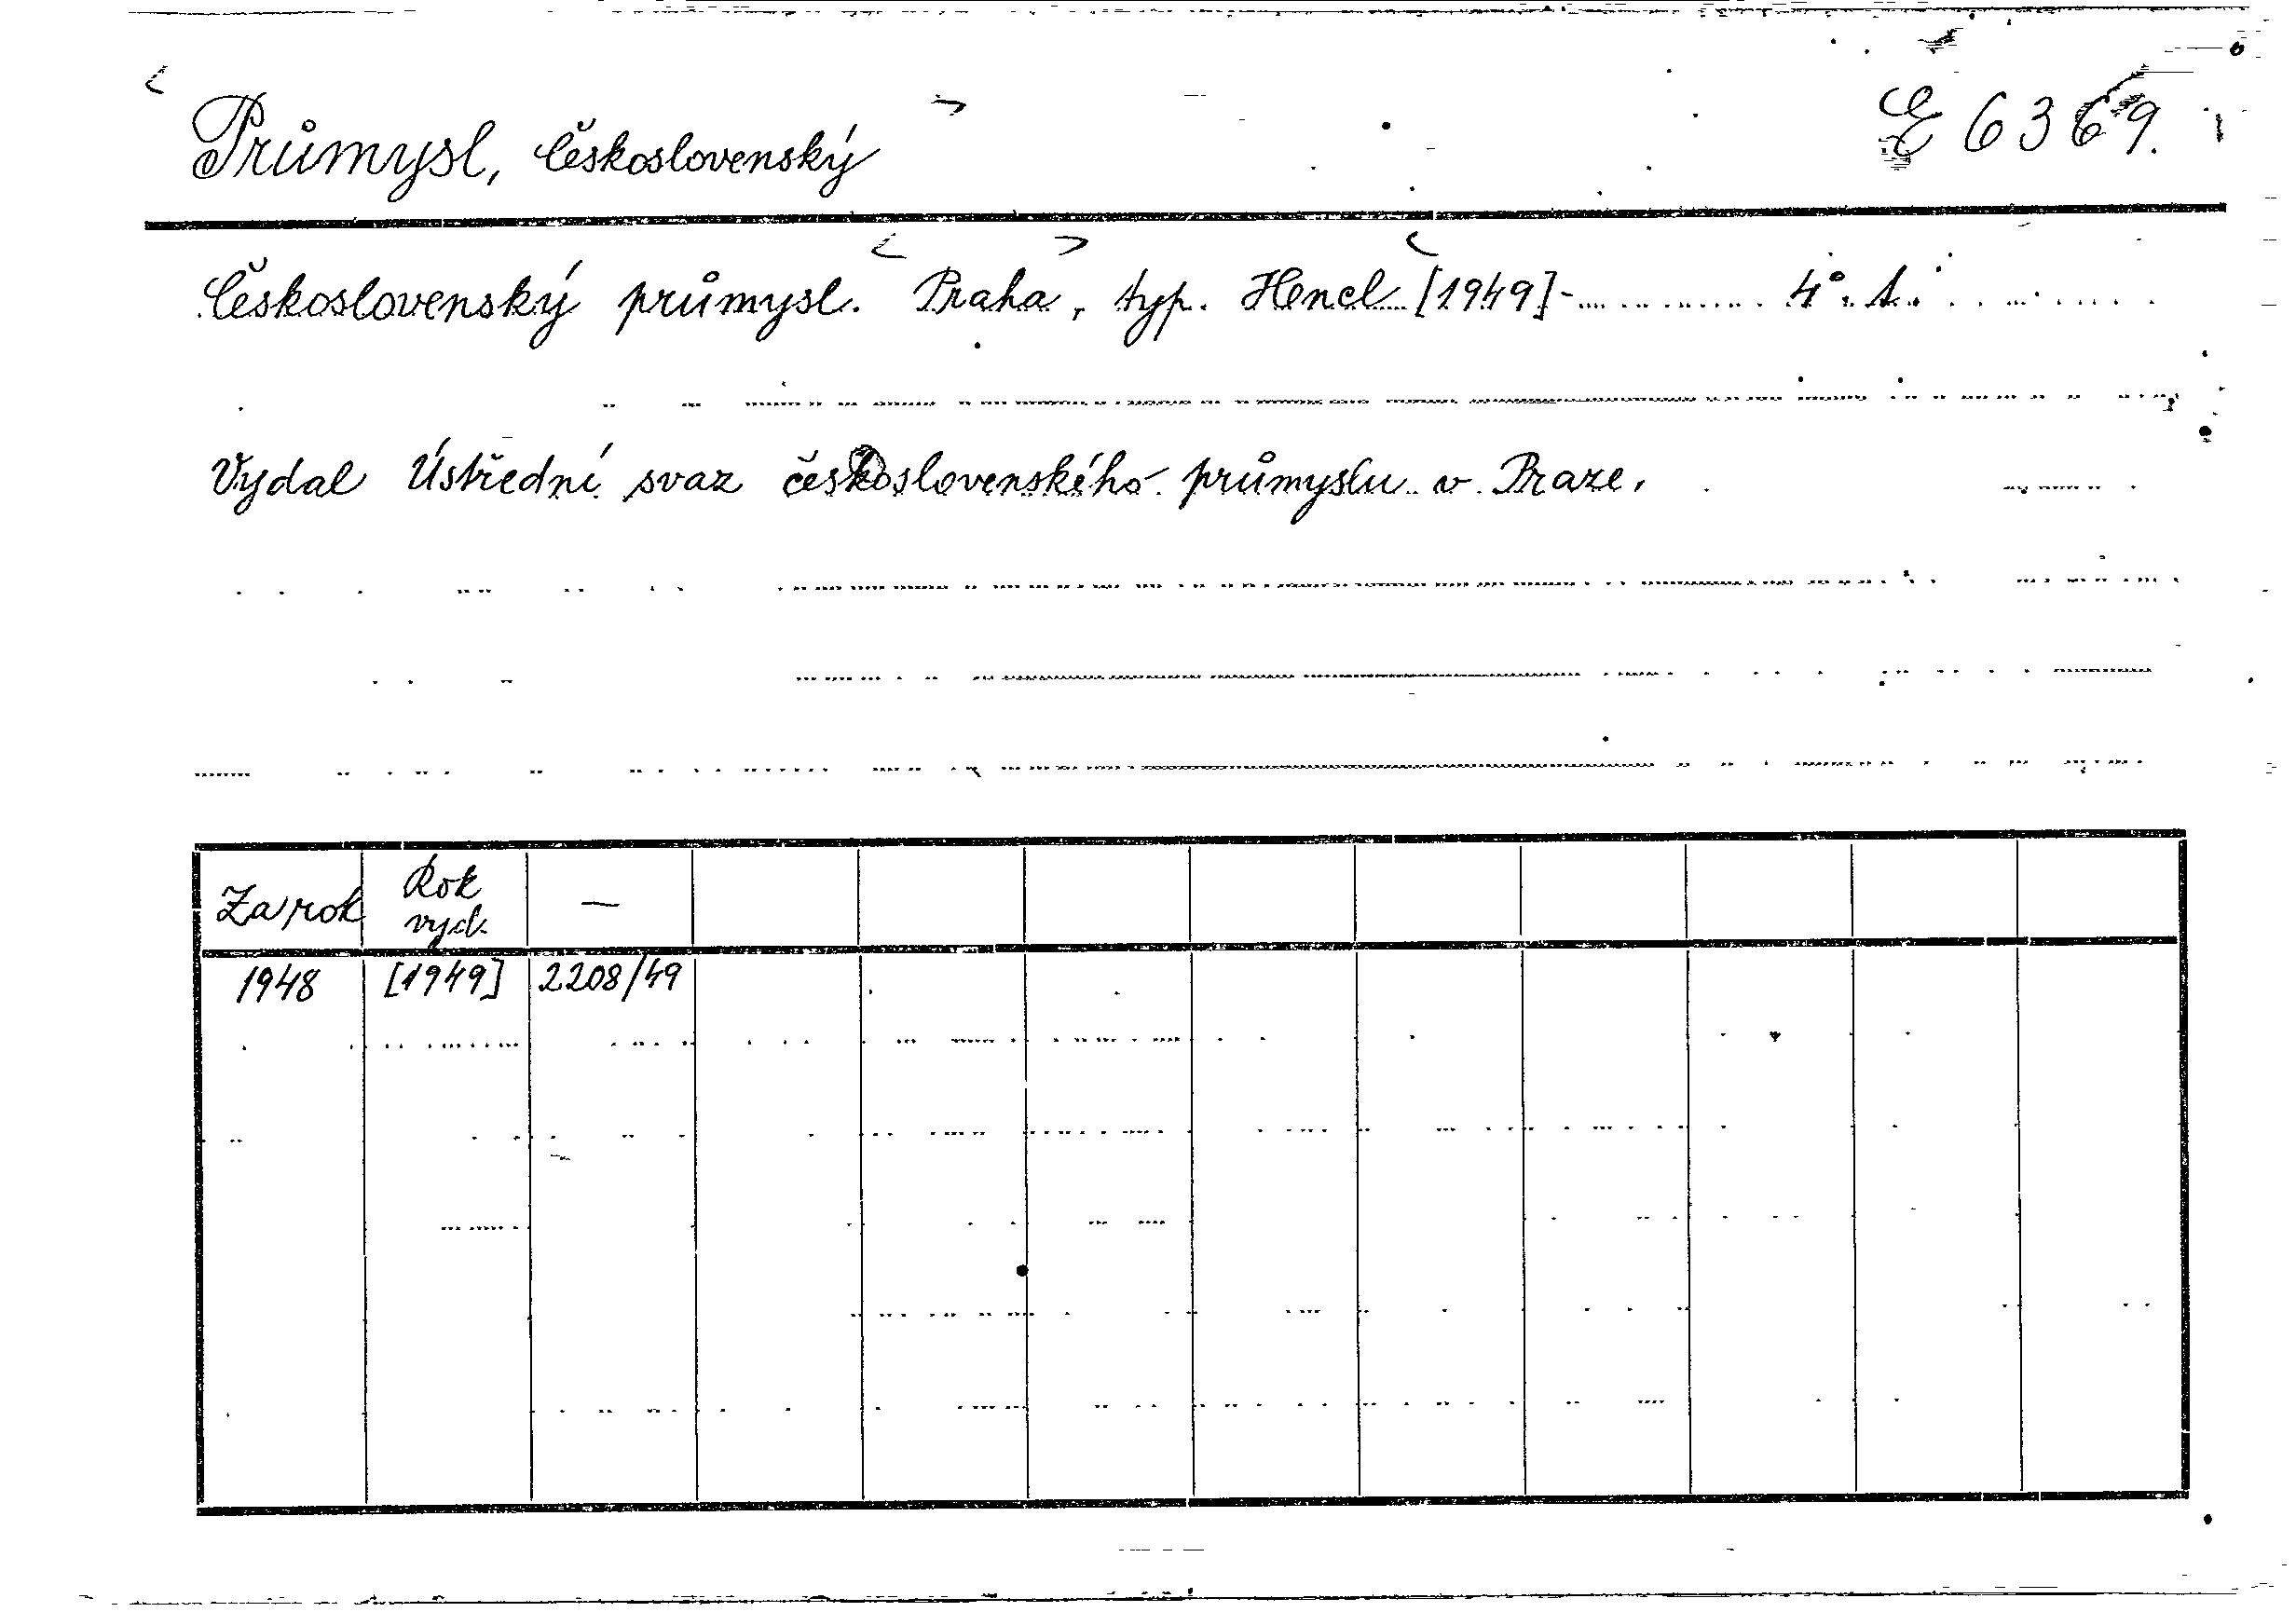 Průmysl, Československý E 6369.
Československý průmysl. Praha, typ. Hencl [1949]- 4°. 1.
Vydal Ústřední svaz československého průmyslu v Praze.
Za rok Rok vyd. —
1948 [1949] 2208/49